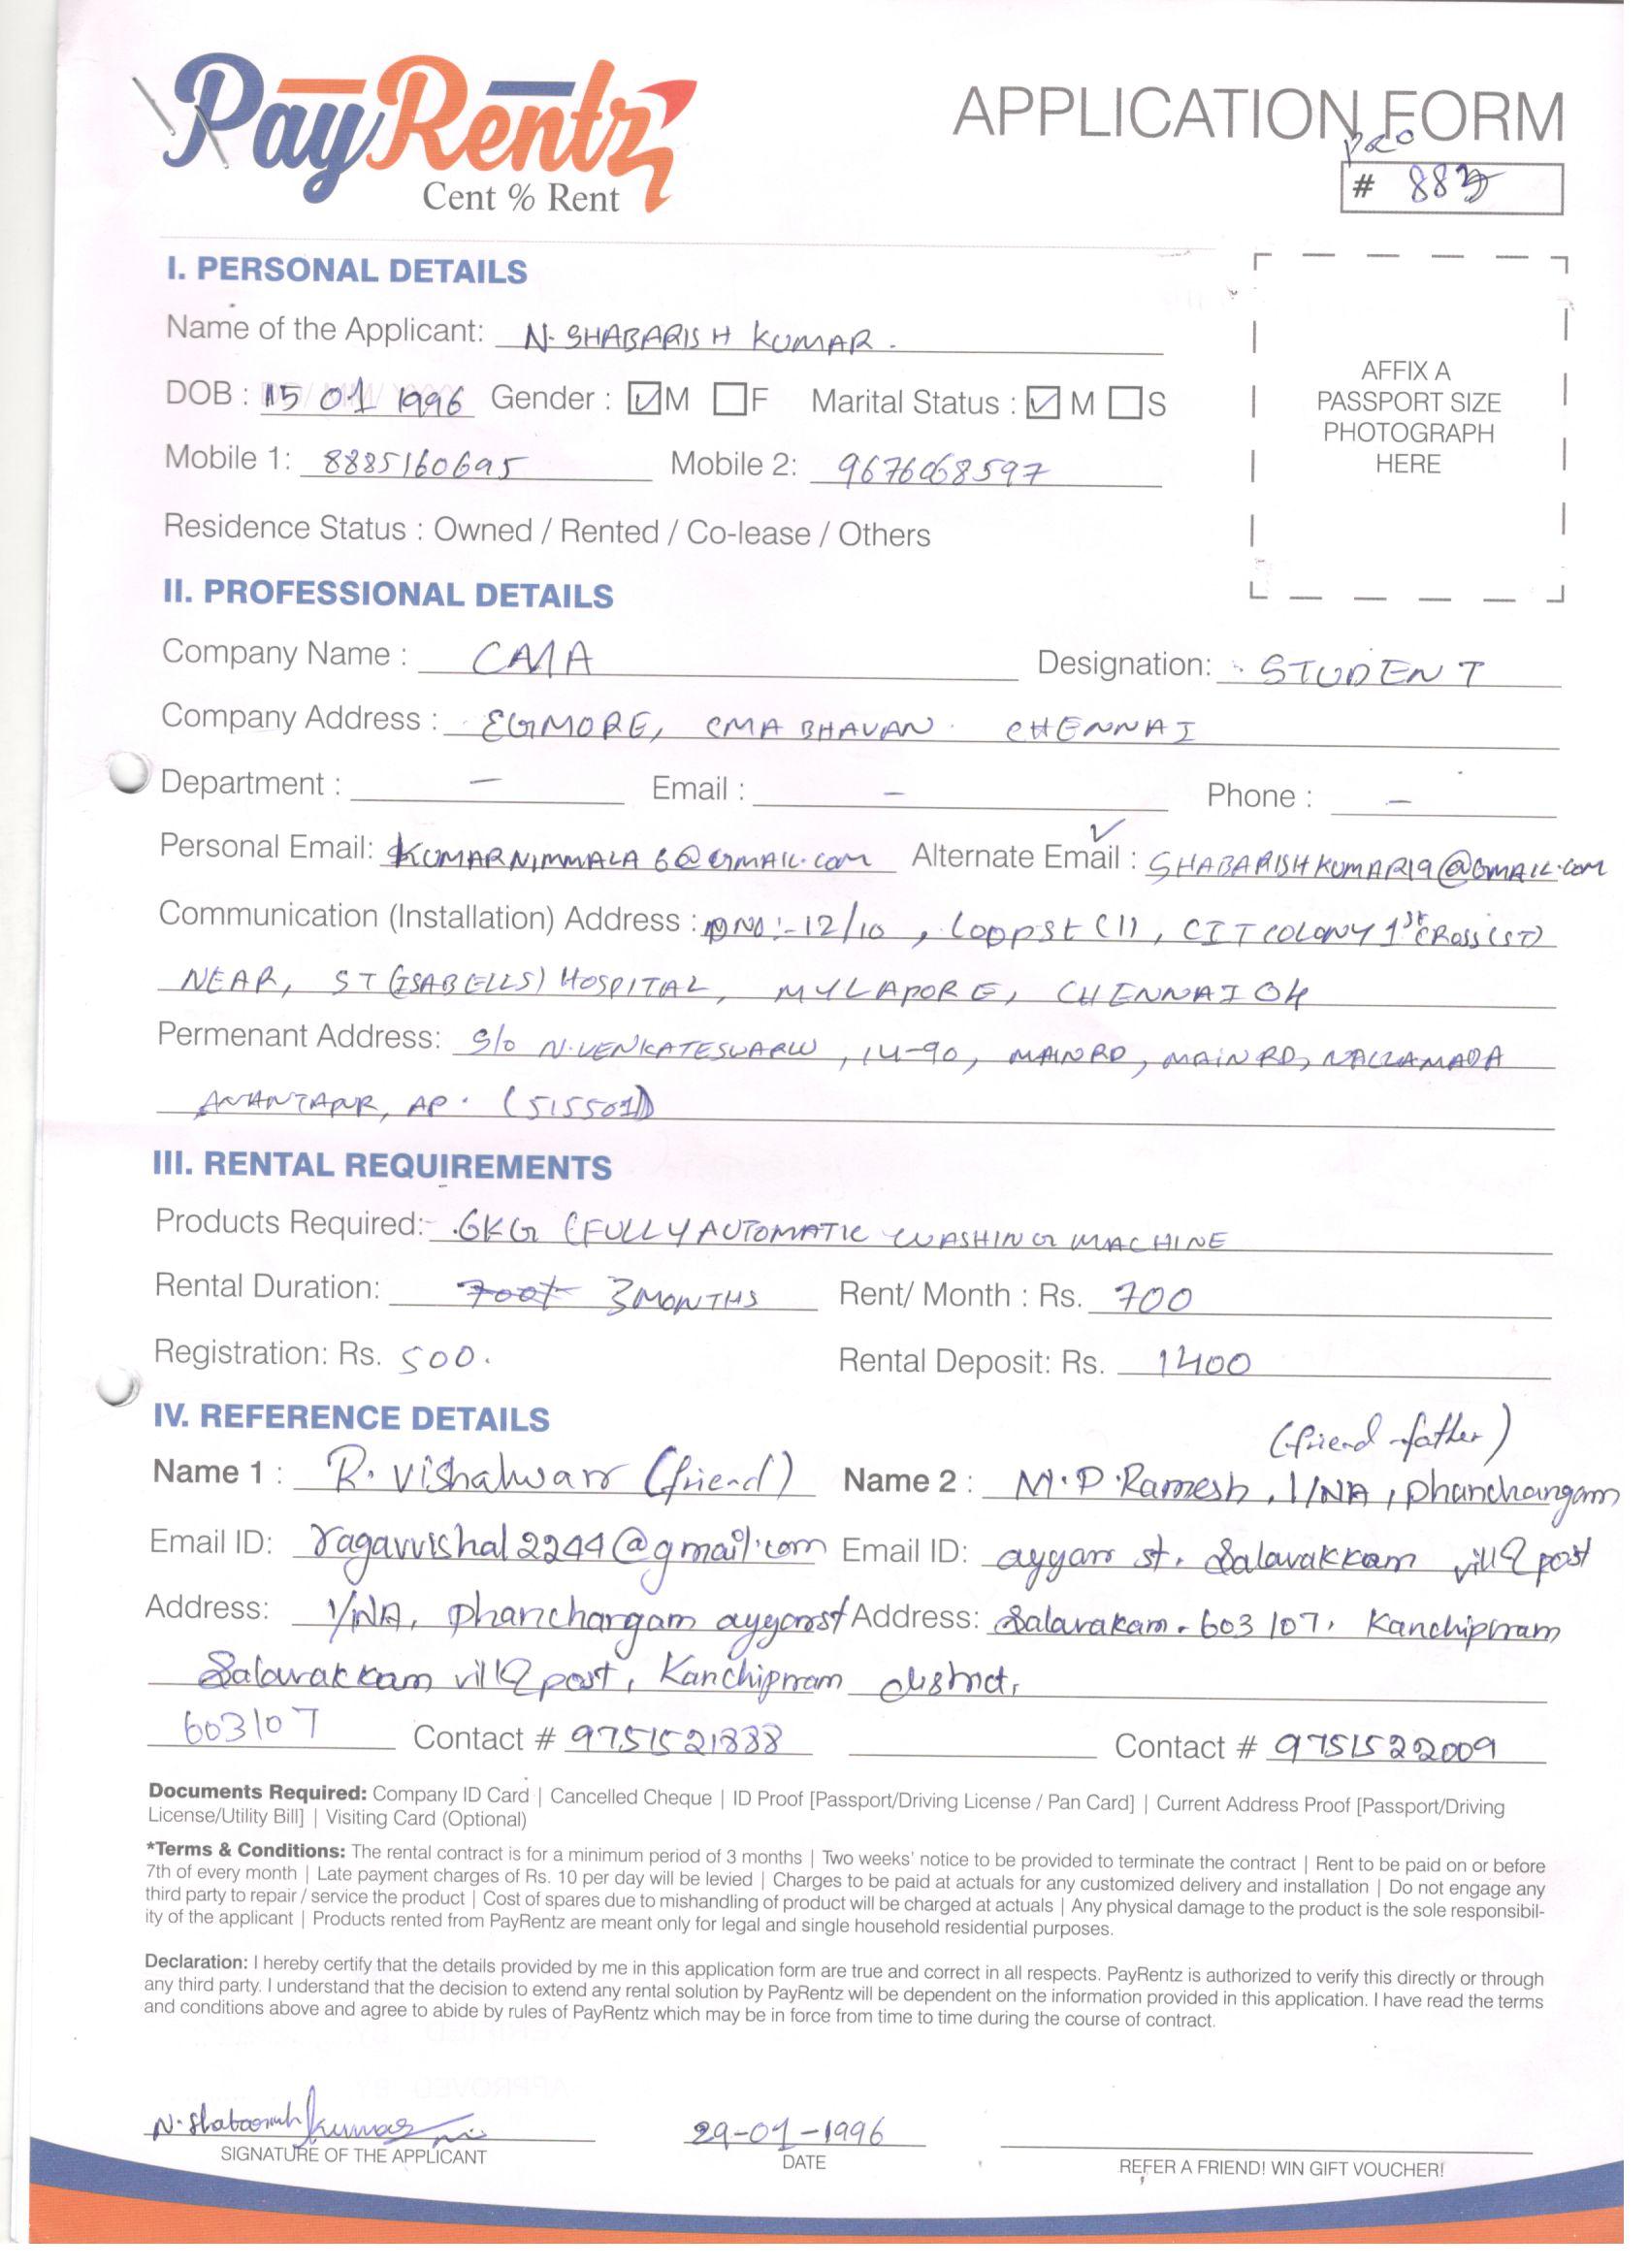 PayRentz
Cent % Rent
APPLICATION FORM
# 882
I. PERSONAL DETAILS
Name of the Applicant: N. SHABARISH KUMAR.
DOB : 15 01 1996 Gender : ☑M ☐F Marital Status : ☑ M ☐S
Mobile 1: 8885160695 Mobile 2: 9676068597
Residence Status : Owned / Rented / Co-lease / Others
AFFIX A
PASSPORT SIZE
PHOTOGRAPH
HERE
II. PROFESSIONAL DETAILS
Company Name : CMA Designation: STUDENT
Company Address : EGMORE, CMA BHAVAN. CHENNAI
Department : — Email : — Phone : —
Personal Email: KUMARNIMMALA6@GMAIL.com Alternate Email : SHABARISHKUMAR19@GMAIL.com
Communication (Installation) Address : DNO:-12/10, Loopst (1), CIT COLONY 1st CROSS (ST)
NEAR, ST (ISABELLS) HOSPITAL, MYLAPORE, CHENNAI 04
Permenant Address: S/o N.VENKATESWARLU, 14-90, MAIN RD, MAIN RD, NALLAMADA
ANANTAPUR, AP. (515501)
III. RENTAL REQUIREMENTS
Products Required:- 6KG (FULLY AUTOMATIC WASHING MACHINE
Rental Duration: 3 MONTHS Rent/ Month : Rs. 700
Registration: Rs. 500. Rental Deposit: Rs. 1400
IV. REFERENCE DETAILS
(friend father)
Name 1 : R. Vishalwarr (friend) Name 2 : M.P. Ramesh, 1/NA, phanchangam
Email ID: ragavvishal2244@gmail.com Email ID: ayyarr st, Salavakkam vill & post
Address: 1/NA, phanchargam ayyarrst Address: Salavakam - 603 107, Kanchipuram
Salavakkam vill & post, Kanchipuram district,
603107 Contact # 9751521838 Contact # 9751522009
Documents Required: Company ID Card | Cancelled Cheque | ID Proof [Passport/Driving License / Pan Card] | Current Address Proof [Passport/Driving
License/Utility Bill] | Visiting Card (Optional)
*Terms & Conditions: The rental contract is for a minimum period of 3 months | Two weeks' notice to be provided to terminate the contract | Rent to be paid on or before
7th of every month | Late payment charges of Rs. 10 per day will be levied | Charges to be paid at actuals for any customized delivery and installation | Do not engage any
third party to repair / service the product | Cost of spares due to mishandling of product will be charged at actuals | Any physical damage to the product is the sole responsibil-
ity of the applicant | Products rented from PayRentz are meant only for legal and single household residential purposes.
Declaration: I hereby certify that the details provided by me in this application form are true and correct in all respects. PayRentz is authorized to verify this directly or through
any third party. I understand that the decision to extend any rental solution by PayRentz will be dependent on the information provided in this application. I have read the terms
and conditions above and agree to abide by rules of PayRentz which may be in force from time to time during the course of contract.
N. Shabarish kumar 29-01-1996
SIGNATURE OF THE APPLICANT DATE REFER A FRIEND! WIN GIFT VOUCHER!